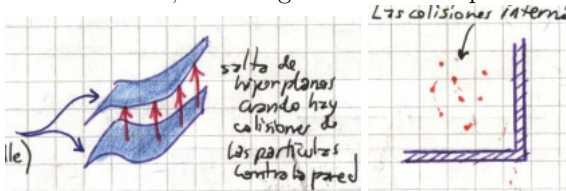 salta de
hiperplanos
cuando hay
colisiones de
las partículas
contra la pared
lle)
Las colisiones interna